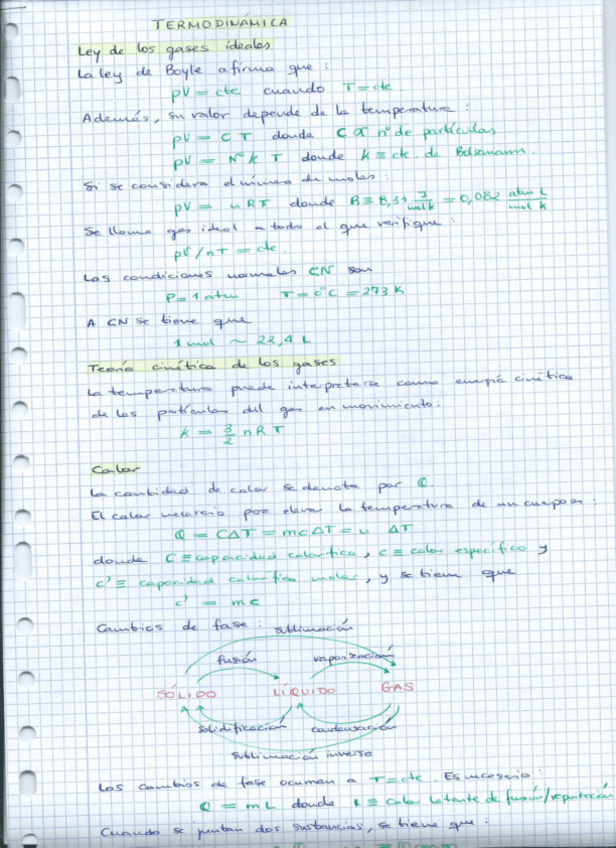 TERMODINÁMICA
Ley de los gases ideales
La ley de Boyle afirma que :
pV = cte cuando T = cte
Además, su valor depende de la temperatura :
pV = C T donde C α nº de partículas
pV = N k T donde k ≡ cte. de Boltzmann.
Si se considera el número de moles :
pV = nRT donde R ≡ 8,31 J/mol k = 0,082 atm L/mol k
Se llama gas ideal a todo el que verifique :
pV/nT = cte.
Las condiciones normales CN son
P = 1 atm T = 0°C = 273 K
A CN se tiene que
1 mol ~ 22,4 L
Teoría cinética de los gases
La temperatura puede interpretarse como energía cinética
de las partículas del gas en movimiento:
k = 3/2 nRT
Calor
La cantidad de calor se denota por Q.
El calor necesario para elevar la temperatura de un cuerpo es :
Q = CΔT = mcΔT = n ΔT
donde C ≡ capacidad calorífica, c ≡ calor específico y
c' ≡ capacidad calorífica molar, y se tiene que
c' = mc
Cambios de fase : sublimación
fusión vaporización
SÓLIDO LÍQUIDO GAS
solidificación condensación
sublimación inversa
Los cambios de fase ocurren a T = cte. Es necesario :
Q = mL donde L ≡ calor latente de fusión/vaporización
Cuando se juntan dos sustancias, se tiene que :